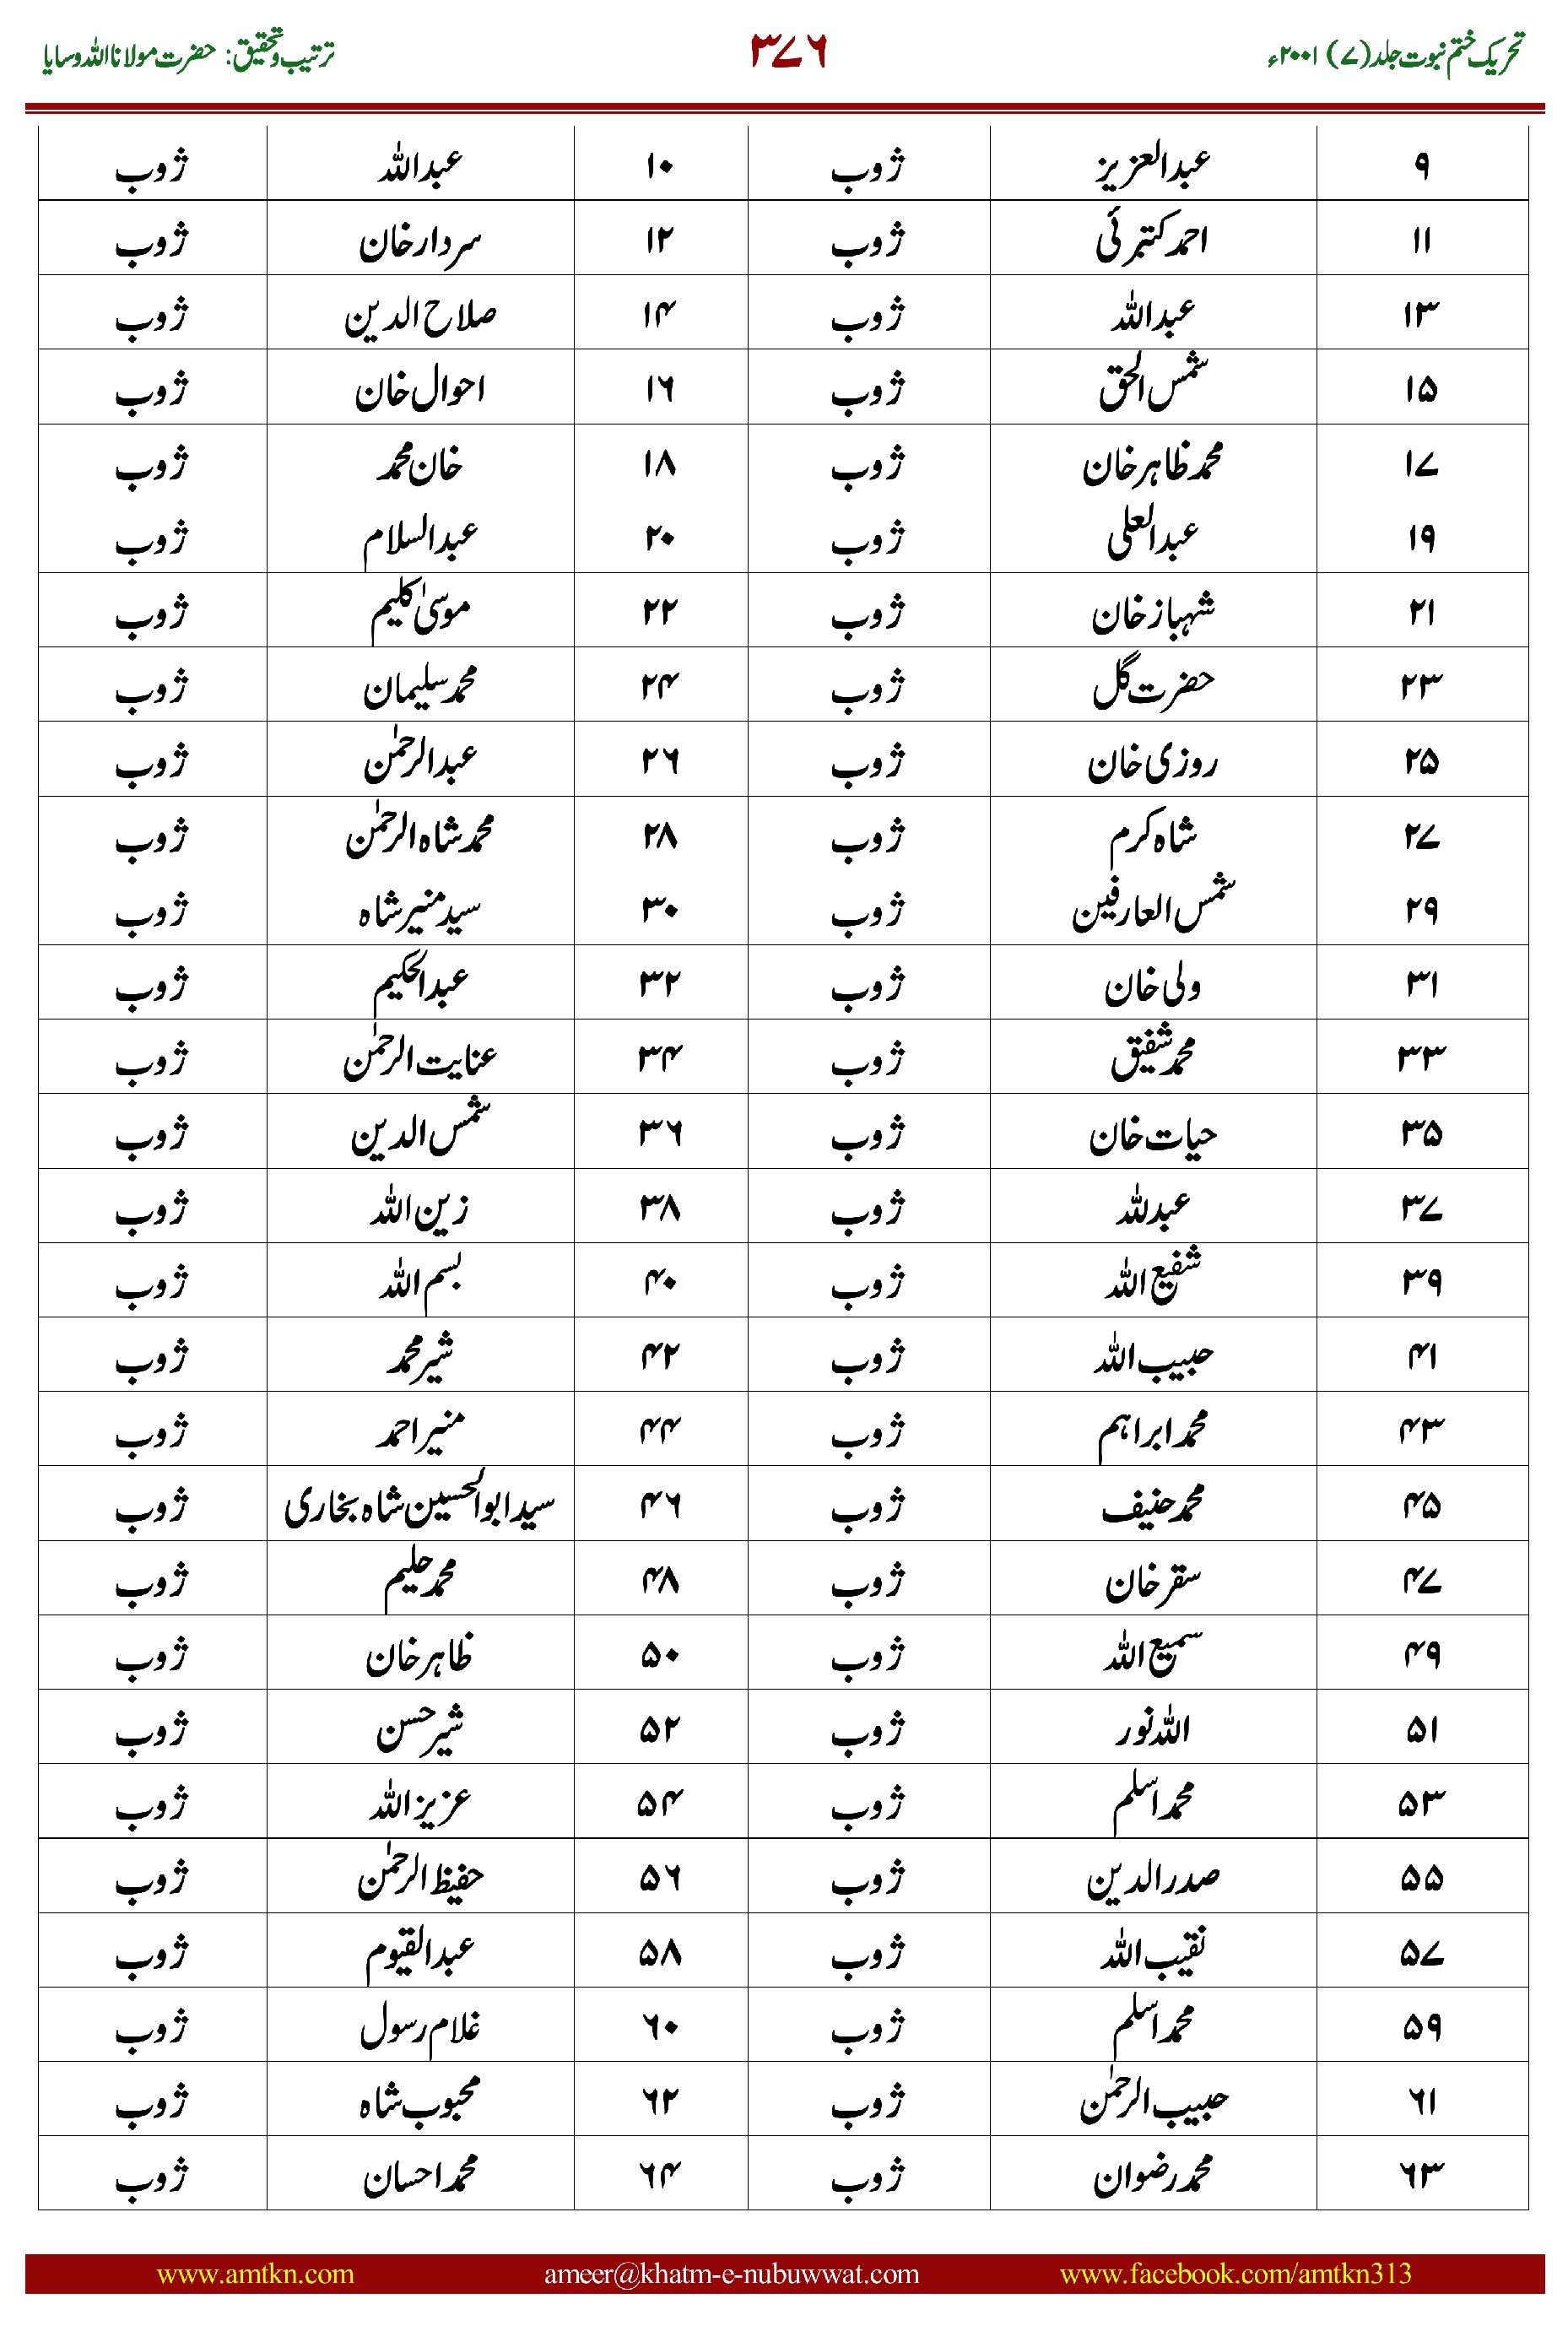 تحریک ختم نبوت جلد (۷) ۲۰۰۱ء ۳۷۶ ترتیب و تحقیق: حضرت مولانا اللہ وسایا
۹ عبدالعزیز ژوب ۱۰ عبداللہ ژوب
۱۱ احمد کتبرئی ژوب ۱۲ سردار خان ژوب
۱۳ عبداللہ ژوب ۱۴ صلاح الدین ژوب
۱۵ شمس الحق ژوب ۱۶ احوال خان ژوب
۱۷ محمد ظاہر خان ژوب ۱۸ خان محمد ژوب
۱۹ عبدالعلی ژوب ۲۰ عبدالسلام ژوب
۲۱ شہباز خان ژوب ۲۲ موسیٰ کلیم ژوب
۲۳ حضرت گل ژوب ۲۴ محمد سلیمان ژوب
۲۵ روزی خان ژوب ۲۶ عبدالرحمٰن ژوب
۲۷ شاہ کرم ژوب ۲۸ محمد شاہ الرحمٰن ژوب
۲۹ شمس العارفین ژوب ۳۰ سید منیر شاہ ژوب
۳۱ ولی خان ژوب ۳۲ عبدالحکیم ژوب
۳۳ محمد شفیق ژوب ۳۴ عنایت الرحمٰن ژوب
۳۵ حیات خان ژوب ۳۶ شمس الدین ژوب
۳۷ عبدللہ ژوب ۳۸ زین اللہ ژوب
۳۹ شفیع اللہ ژوب ۴۰ بسم اللہ ژوب
۴۱ حبیب اللہ ژوب ۴۲ شیر محمد ژوب
۴۳ محمد ابراہم ژوب ۴۴ منیر احمد ژوب
۴۵ محمد حنیف ژوب ۴۶ سید ابوالحسین شاہ بخاری ژوب
۴۷ سقر خان ژوب ۴۸ محمد حلیم ژوب
۴۹ سمیع اللہ ژوب ۵۰ ظاہر خان ژوب
۵۱ اللہ نور ژوب ۵۲ شیر حسن ژوب
۵۳ محمد اسلم ژوب ۵۴ عزیز اللہ ژوب
۵۵ صدر الدین ژوب ۵۶ حفیظ الرحمٰن ژوب
۵۷ نقیب اللہ ژوب ۵۸ عبدالقیوم ژوب
۵۹ محمد اسلم ژوب ۶۰ غلام رسول ژوب
۶۱ حبیب الرحمٰن ژوب ۶۲ محبوب شاہ ژوب
۶۳ محمد رضوان ژوب ۶۴ محمد احسان ژوب
www.amtkn.com ameer@khatm-e-nubuwwat.com www.facebook.com/amtkn313